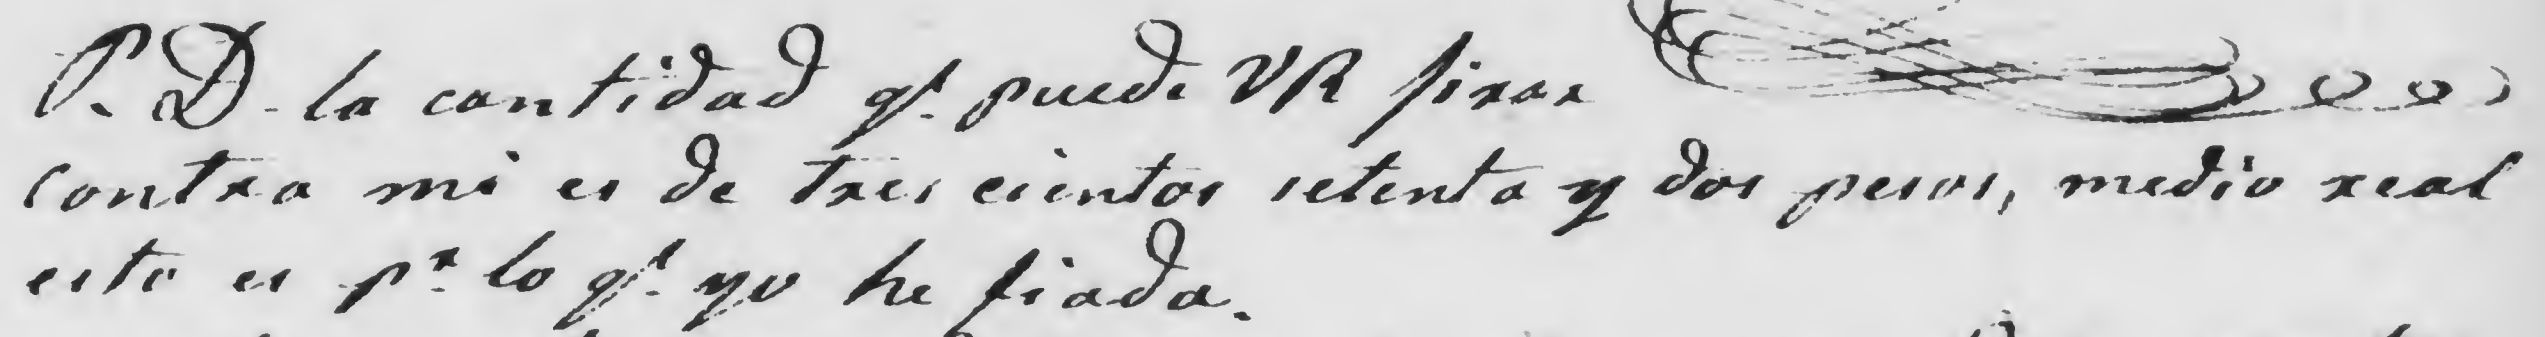 P. D. la cantidad qᵉ. puede VR jirar
contra mi es de tres cientos setenta y dos pesos, medio real
esto es pʳ. lo qᵉ. yo he fiado.